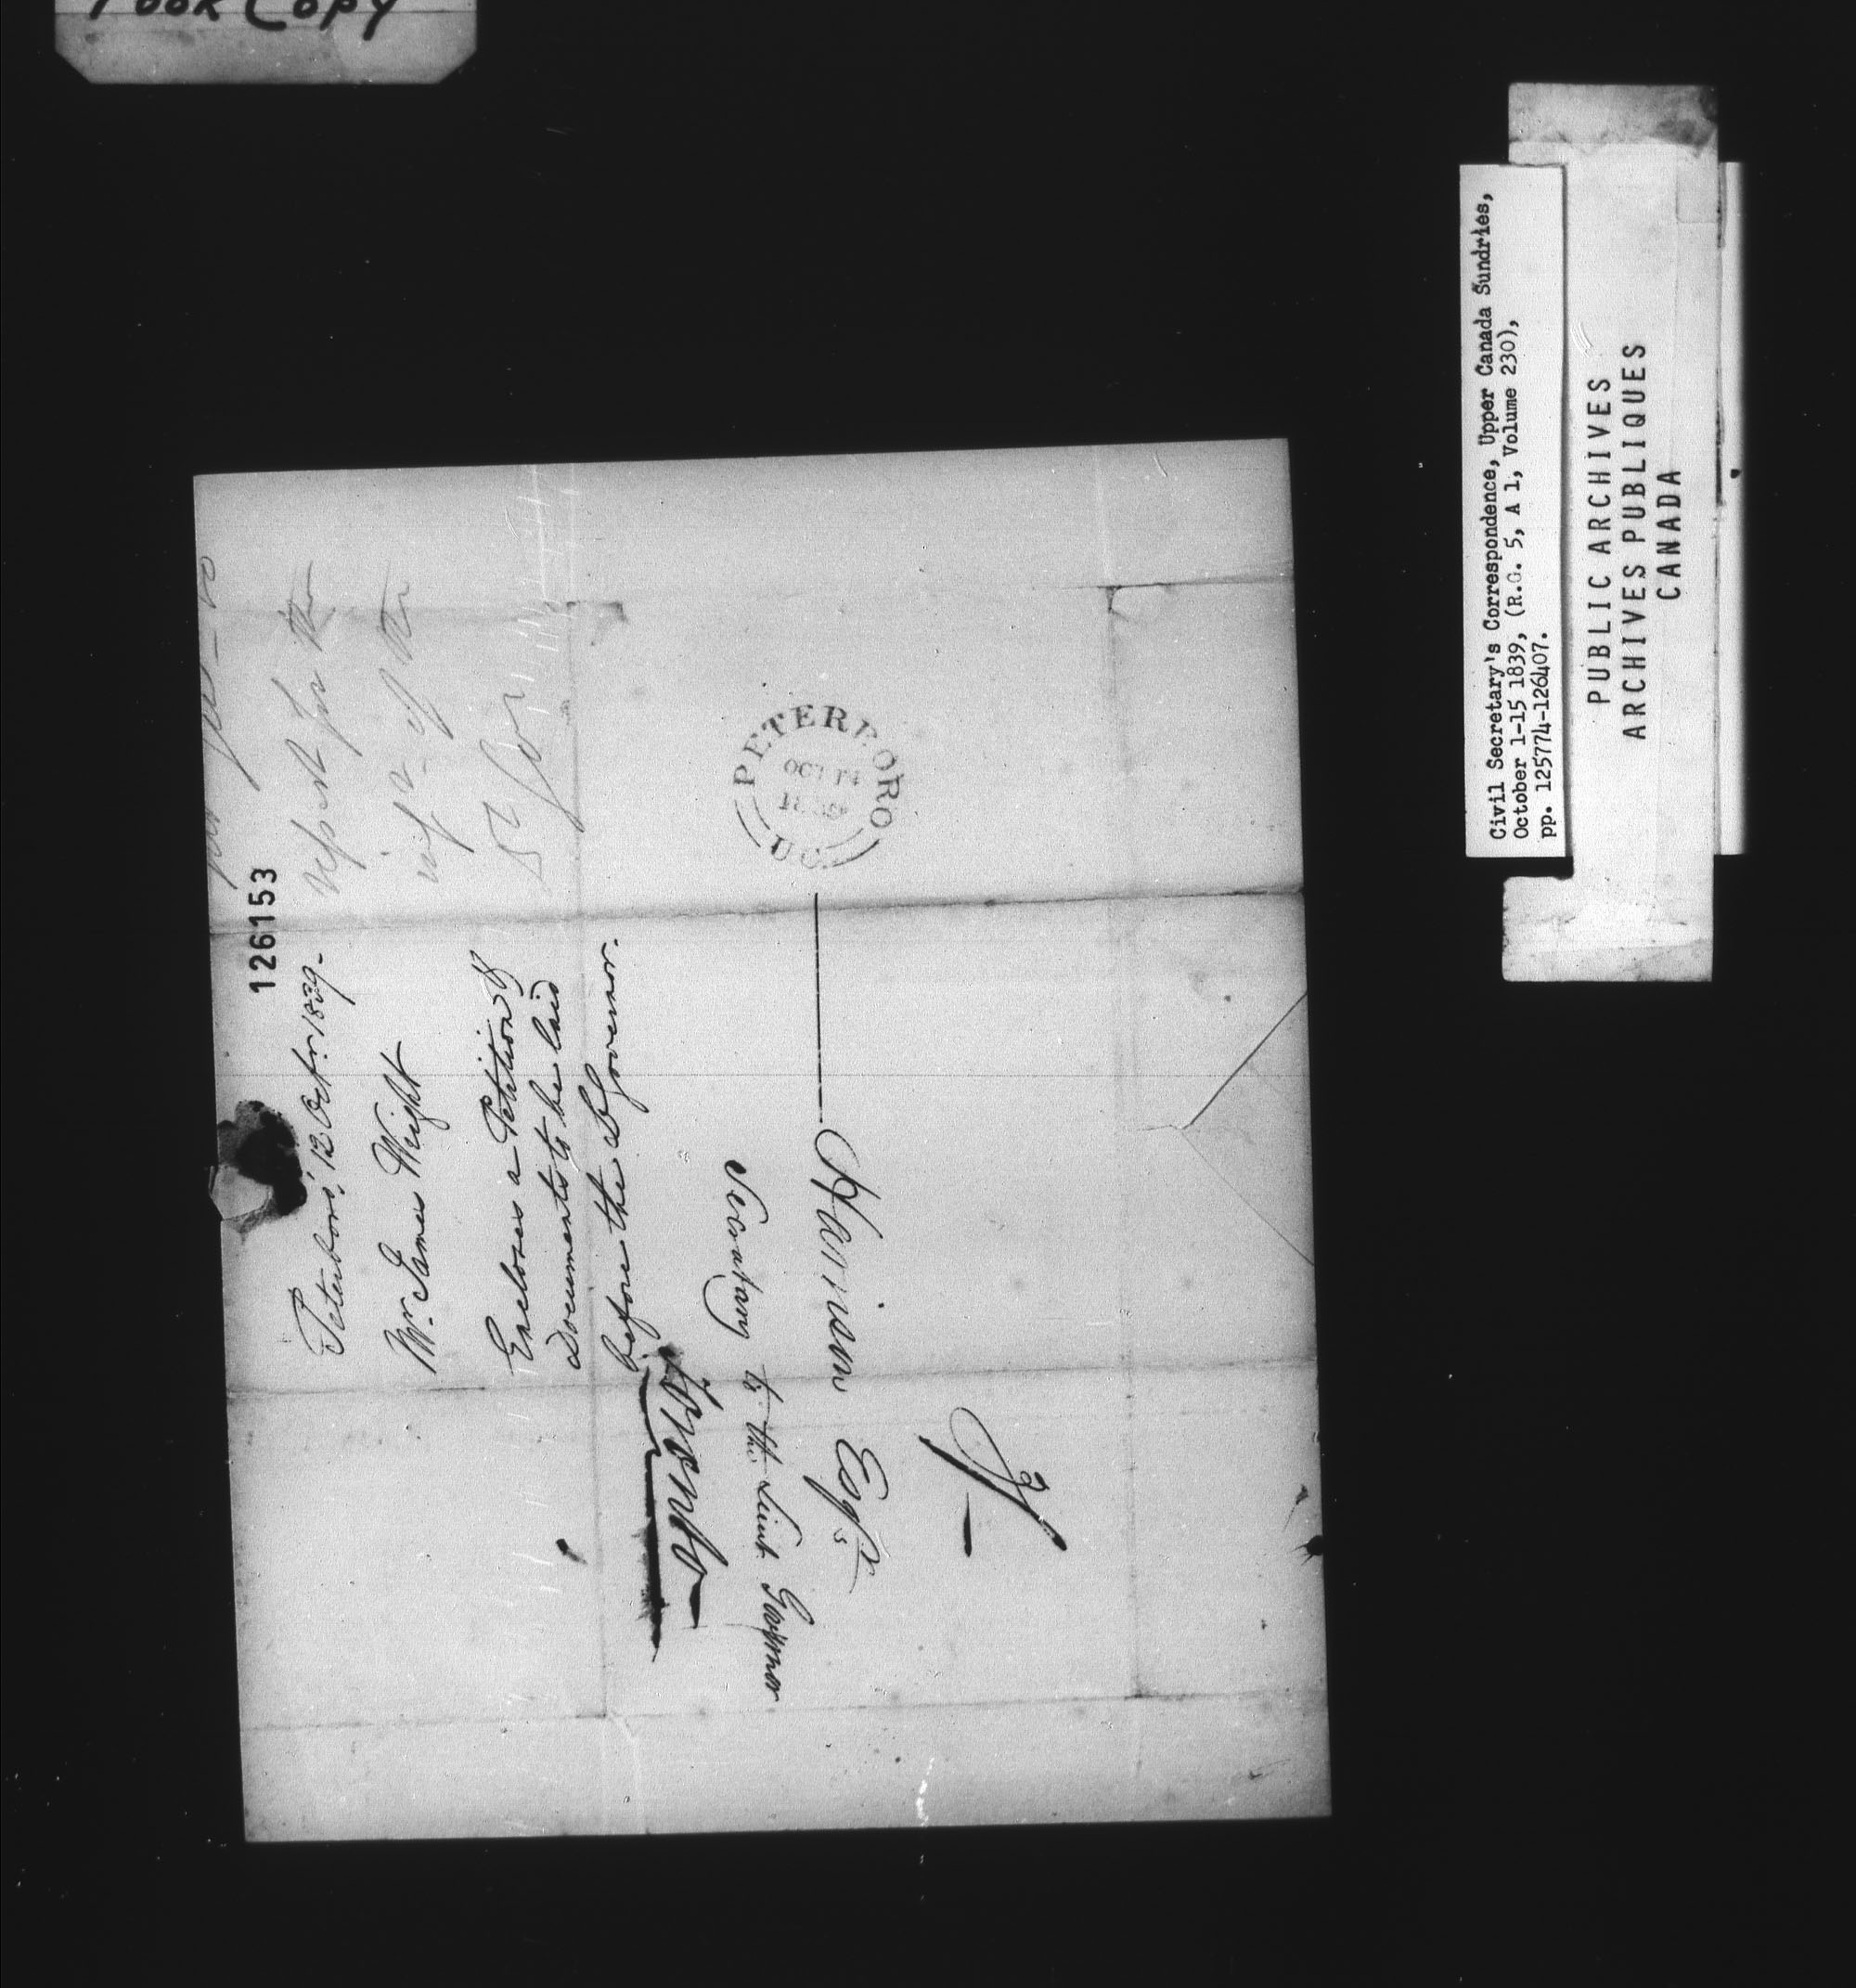 Poor Copy
126153
Peterboro', 12 Octr. 1839-
Mr. James Wright
Encloses a Petition &
Documents to be laid
before the Lt Governor.
report for the
inf.n of the
Lt Gov
PETERBORO
OCT 14
1839
U C
Harrison Esqr
Secretary to the Lieut. Governor
Toronto
Civil Secretary's Correspondence, Upper Canada Sundries,
October 1-15 1839, (R.G. 5, A 1, Volume 230),
pp. 125774-126407.
PUBLIC ARCHIVES
ARCHIVES PUBLIQUES
CANADA